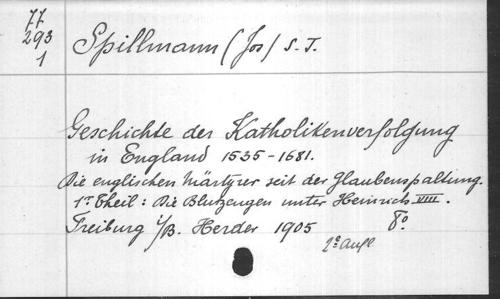 77
293
1
Spillmann (Jos) S. J.
Geschichte der Katholikenverfolgung
in England 1535-1681.
Die englischen Märtyrer seit der Glaubensspaltung.
1r Theil: Die Blutzeugen unter Heinrich VIII.
Freiburg i/B. Herder 1905 8o
2e Aufl